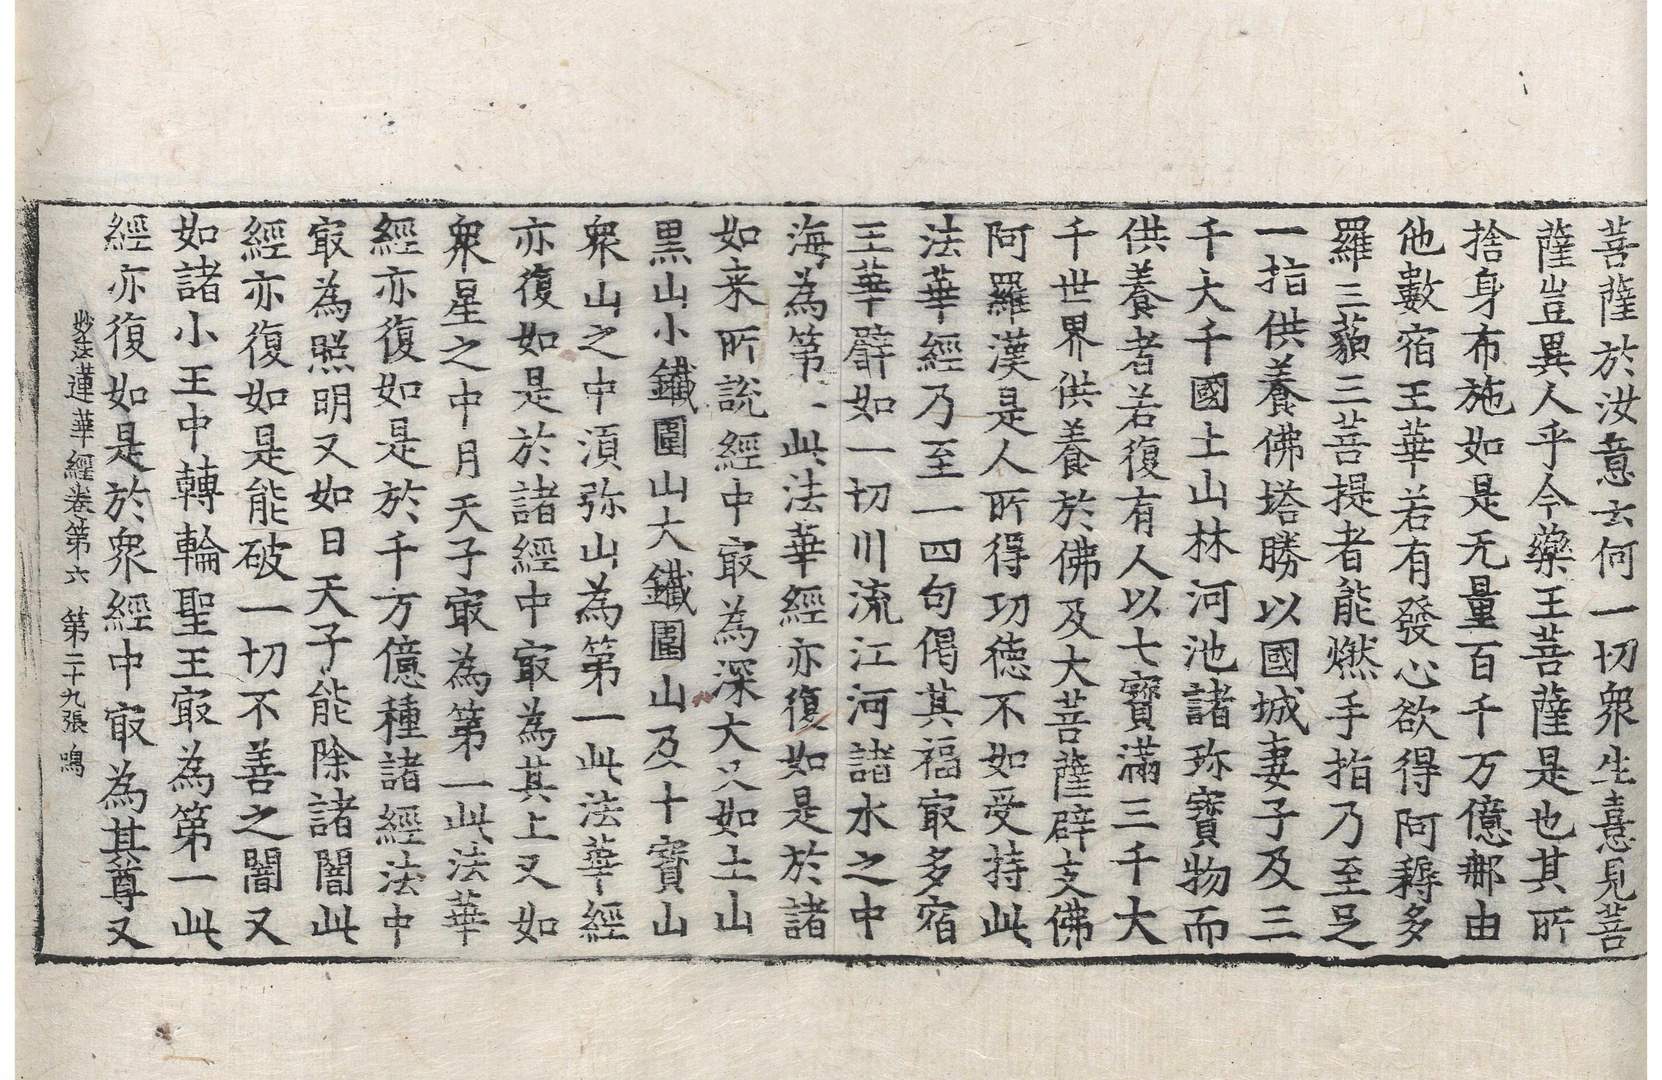 菩薩於汝意云何一切衆生憙見菩
薩豈異人乎今藥王菩薩是也其所
捨身布施如是无量百千万億那由
他數宿王華若有發心欲得阿耨多
羅三藐三菩提者能燃手指乃至足
一指供養佛塔勝以國城妻子及三
千大千國土山林河池諸珎寶物而
供養者若復有人以七寶滿三千大
千世界供養於佛及大菩薩辟支佛
阿羅漢是人所得功德不如受持此
法華經乃至一四句偈其福㝡多宿
王華譬如一切川流江河諸水之中
海為第一此法華經亦復如是於諸
如来所說經中㝡為深大又如土山
黒山小鐵圍山大鐵圍山及十寶山
衆山之中須弥山為第一此法華經
亦復如是於諸經中㝡為其上又如
衆星之中月天子㝡為第一此法華
經亦復如是於千万億種諸經法中
㝡為照明又如日天子能除諸闇此
經亦復如是能破一切不善之闇又
如諸小王中轉輪聖王㝡為第一此
經亦復如是於衆經中㝡為其尊又
妙法蓮華經卷第六　第二十九張　鳴